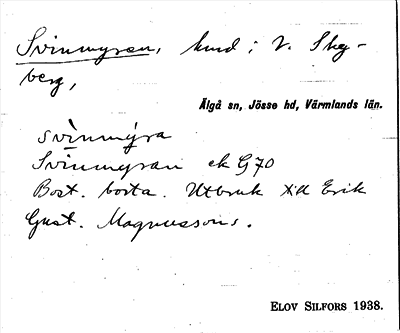 Svinmyran, hmd i V. Skog-
berg,
Älgå sn, Jösse hd, Värmlands län.
svìnmýra
Svinmyran ek G70
Bost. borta. Utbruk till Erik
Gust. Magnussons.
ELOV SILFORS 1938.